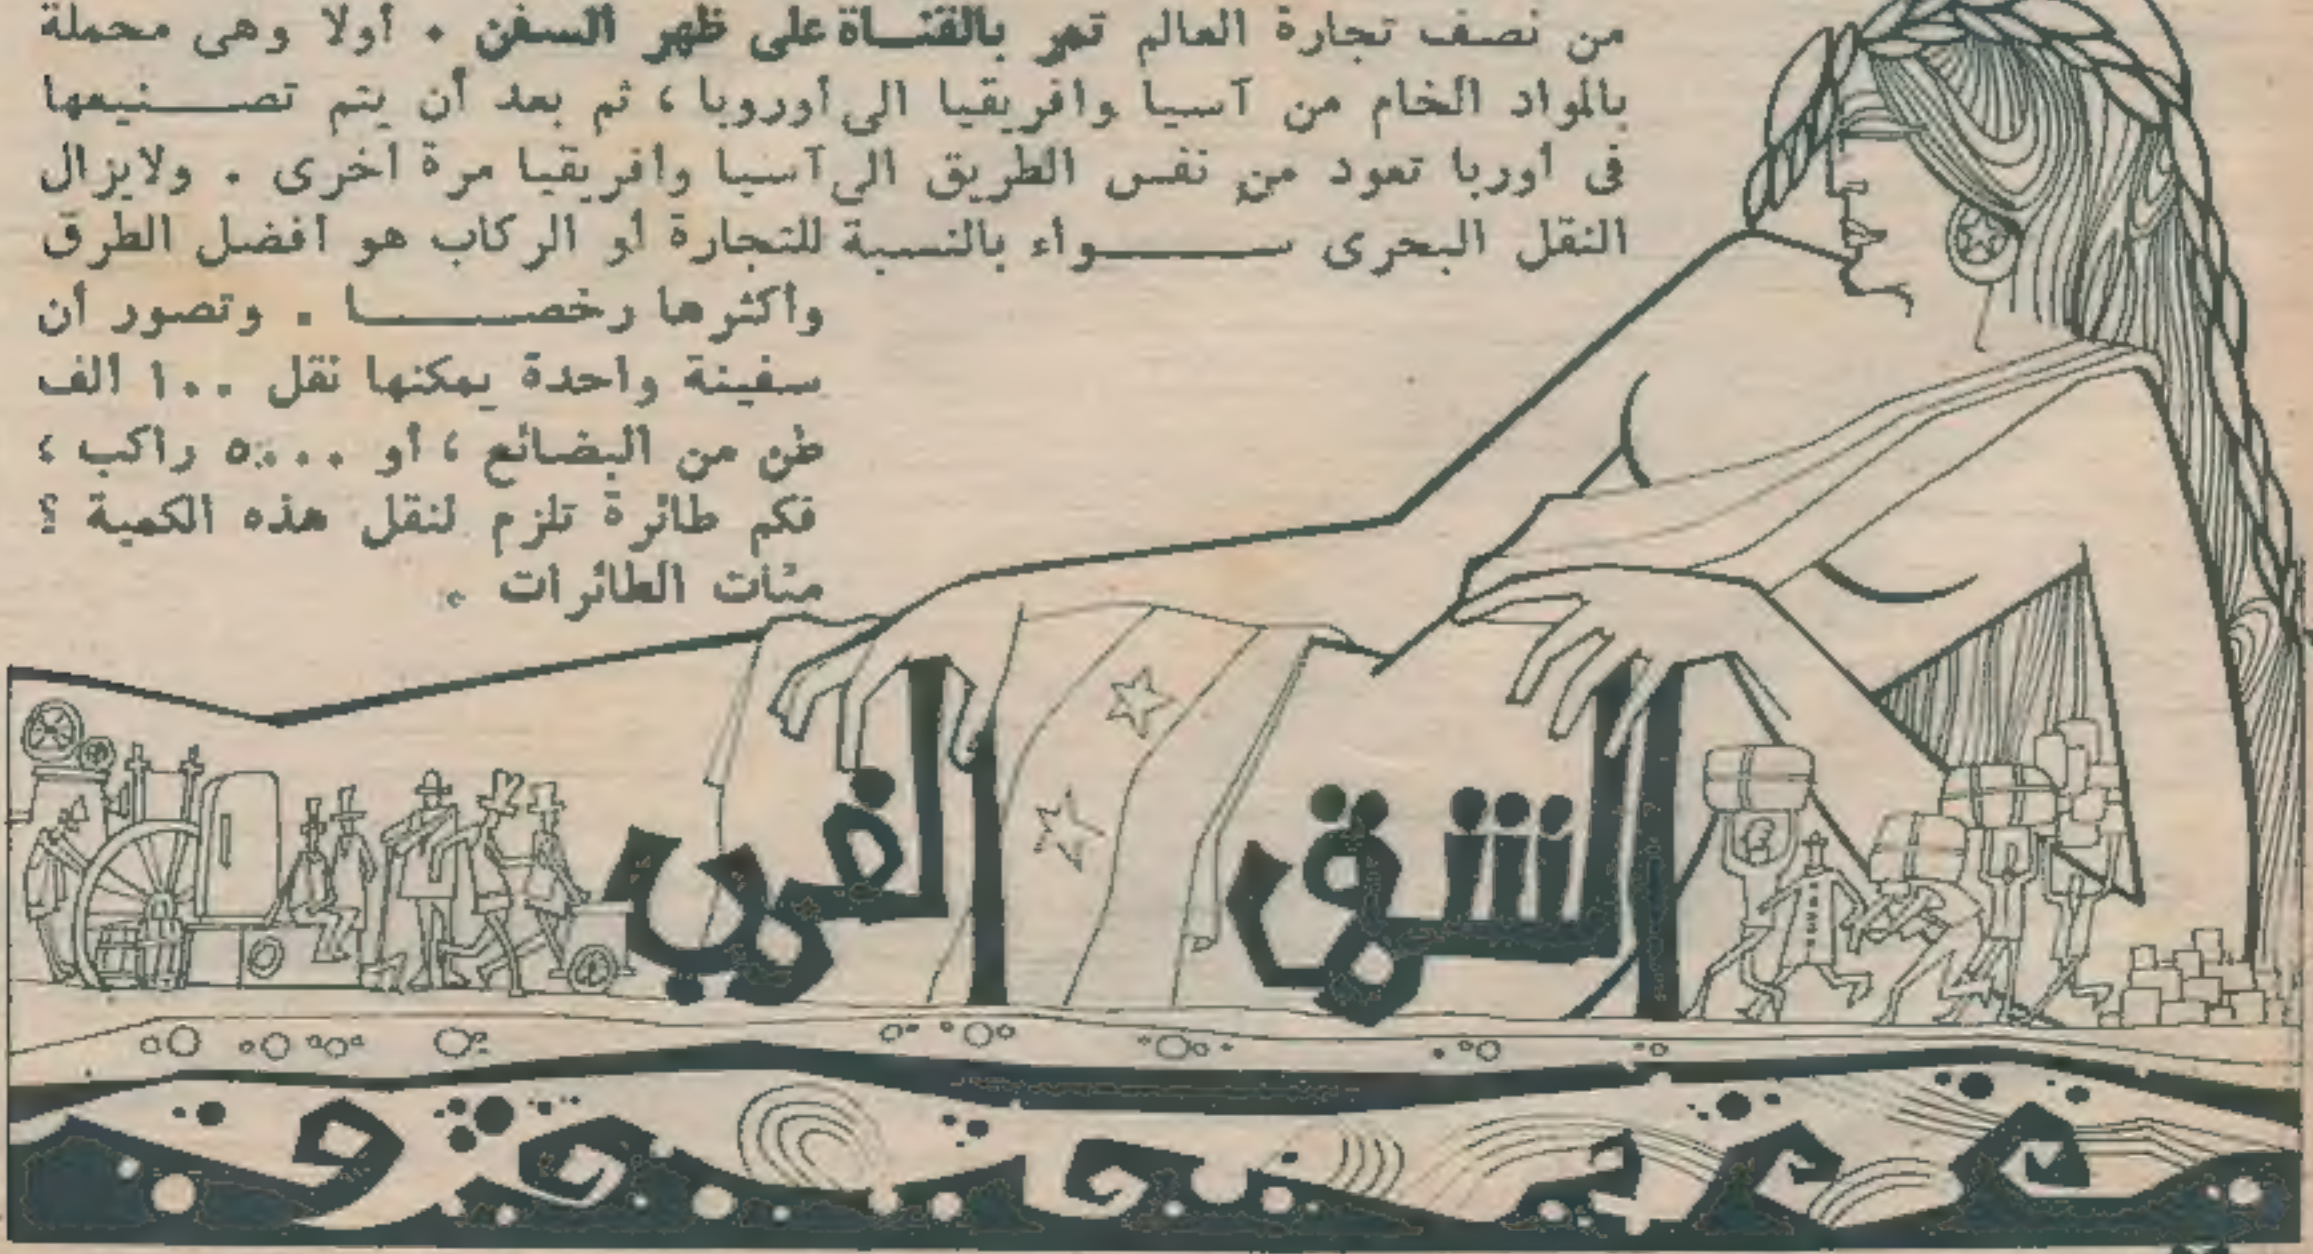 من نصف تجارة العالم تمر بالقناة على ظهر السفن . أولا وهى محملة
بالمواد الخام من آسيا وافريقيا الى أوروبا ، ثم بعد أن يتم تصنيعها
فى أوربا تعود من نفس الطريق الى آسيا وافريقيا مرة أخرى . ولايزال
النقل البحرى سواء بالنسبة للتجارة أو الركاب هو أفضل الطرق
وأكثرها رخصا . وتصور أن
سفينة واحدة يمكنها نقل ١٠٠ ألف
طن من البضائع ، أو ٥٠٠٠ راكب ،
فكم طائرة تلزم لنقل هذه الكمية ؟
مئات الطائرات .
الشرق الغرب